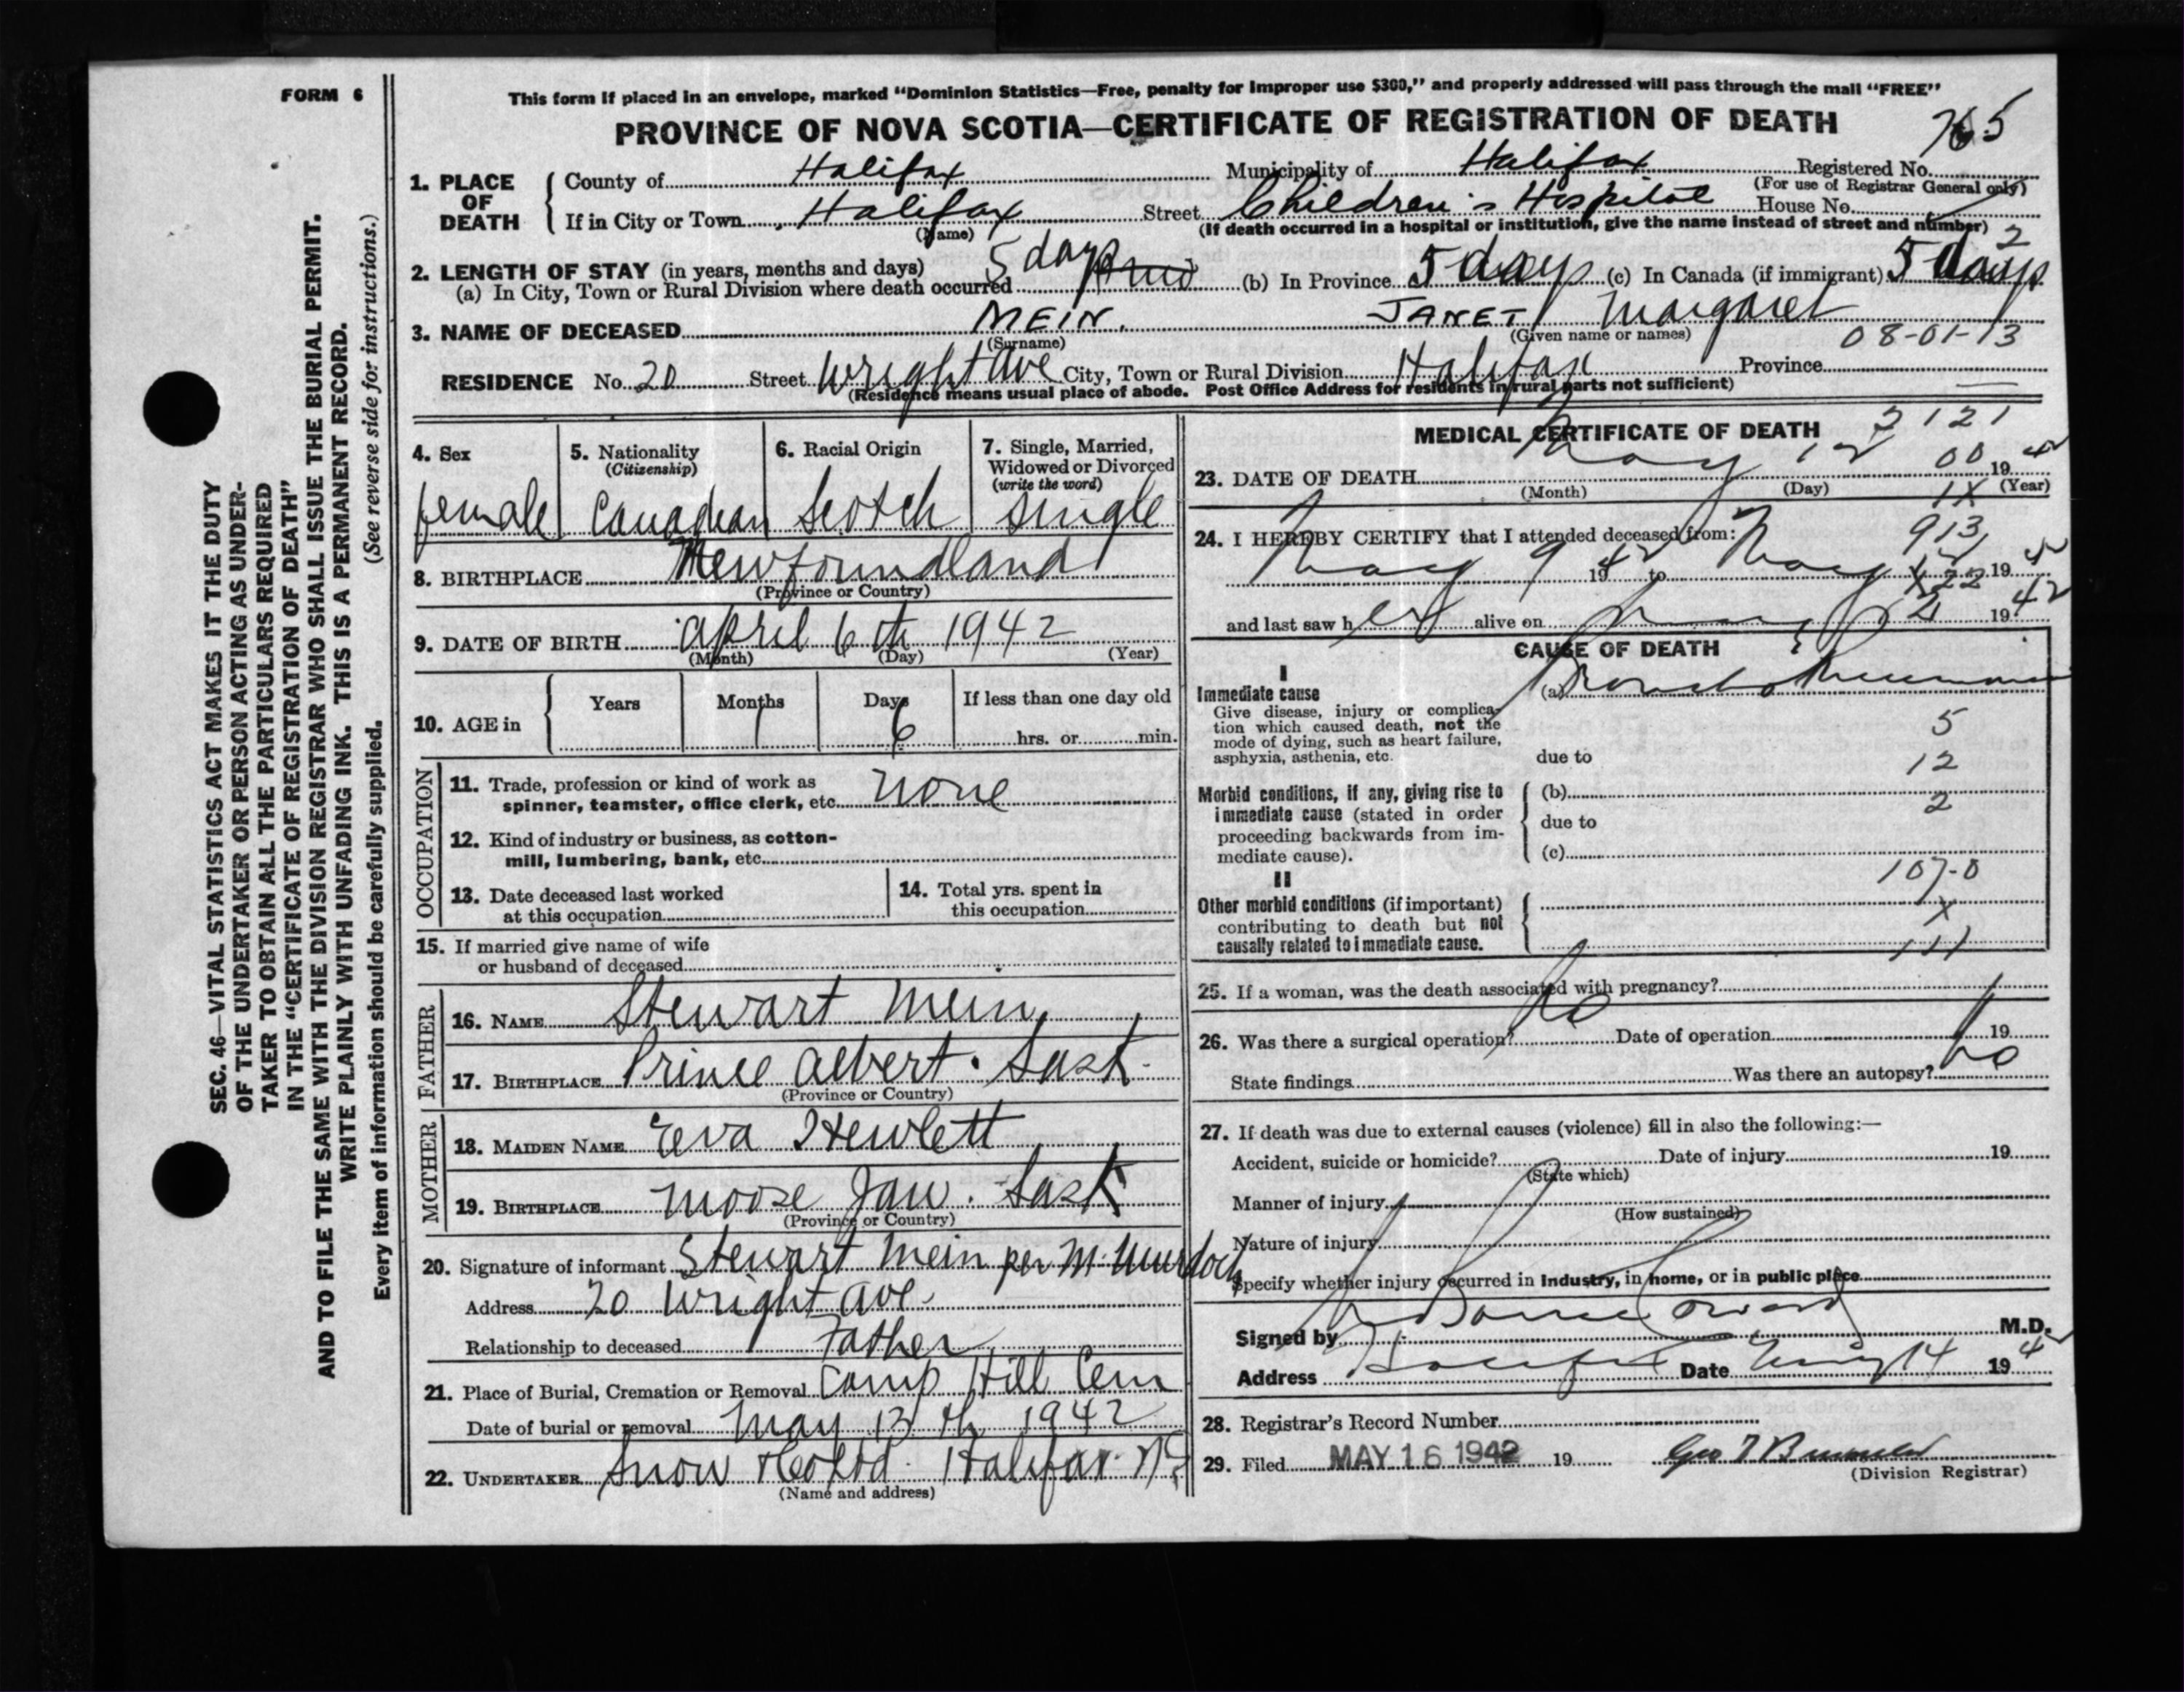 FORM 6
This form if placed in an envelope, marked "Dominion Statistics—Free, penalty for improper use $300," and properly addressed will pass through the mail "FREE"
PROVINCE OF NOVA SCOTIA—CERTIFICATE OF REGISTRATION OF DEATH
765
1. PLACE OF DEATH
County of Halifax Municipality of Halifax Registered No.
(For use of Registrar General only)
If in City or Town Halifax Street Children's Hospital House No.
(Name) (If death occurred in a hospital or institution, give the name instead of street and number)
2
2. LENGTH OF STAY (in years, months and days)
(a) In City, Town or Rural Division where death occurred 5 days (b) In Province 5 days (c) In Canada (if immigrant) 5 days
3. NAME OF DECEASED MEIN, JANET Margaret
(Surname) (Given name or names) 08-01-13
RESIDENCE No. 20 Street Wright Ave City, Town or Rural Division Halifax Province
(Residence means usual place of abode. Post Office Address for residents in rural parts not sufficient)
4. Sex
female
5. Nationality
(Citizenship)
Canadian
6. Racial Origin
Scotch
7. Single, Married,
Widowed or Divorced
(write the word)
single
8. BIRTHPLACE Newfoundland
(Province or Country)
9. DATE OF BIRTH April 6th 1942
(Month) (Day) (Year)
10. AGE in
Years Months Days If less than one day old
1 6 hrs. or min.
OCCUPATION
11. Trade, profession or kind of work as
spinner, teamster, office clerk, etc. none
12. Kind of industry or business, as cotton-
mill, lumbering, bank, etc.
13. Date deceased last worked
at this occupation
14. Total yrs. spent in
this occupation
15. If married give name of wife
or husband of deceased
FATHER
16. NAME Stewart Mein
17. BIRTHPLACE Prince Albert. Sask.
(Province or Country)
MOTHER
18. MAIDEN NAME Eva Hewlett
19. BIRTHPLACE Moose Jaw. Sask
(Province or Country)
20. Signature of informant Stewart Mein per M. Murdoch
Address 20 Wright Ave.
Relationship to deceased Father
21. Place of Burial, Cremation or Removal Camp Hill Cem
Date of burial or removal May 13th 1942
22. UNDERTAKER Snow & Co Ltd. Halifax. N.S.
(Name and address)
MEDICAL CERTIFICATE OF DEATH
2121
23. DATE OF DEATH May 12 00 1942
(Month) (Day) (Year)
1X
913
24. I HEREBY CERTIFY that I attended deceased from:
May 9 1942 to May 12 1942
22
and last saw her alive on May 12 1942
CAUSE OF DEATH
I
Immediate cause
Give disease, injury or complica-
tion which caused death, not the
mode of dying, such as heart failure,
asphyxia, asthenia, etc.
(a) Broncho Pneumonia
due to
5
12
2
Morbid conditions, if any, giving rise to
immediate cause (stated in order
proceeding backwards from im-
mediate cause).
(b)
due to
(c)
II
107-0
X
111
Other morbid conditions (if important)
contributing to death but not
causally related to immediate cause.
25. If a woman, was the death associated with pregnancy?
26. Was there a surgical operation? No Date of operation 19
State findings Was there an autopsy? No
27. If death was due to external causes (violence) fill in also the following:—
Accident, suicide or homicide? Date of injury 19
(State which)
Manner of injury
(How sustained)
Nature of injury
Specify whether injury occurred in industry, in home, or in public place
Signed by M.D.
Address Halifax Date May 14 1942
28. Registrar's Record Number
29. Filed MAY 16 1942 19
(Division Registrar)
SEC. 46—VITAL STATISTICS ACT MAKES IT THE DUTY
OF THE UNDERTAKER OR PERSON ACTING AS UNDER-
TAKER TO OBTAIN ALL THE PARTICULARS REQUIRED
IN THE "CERTIFICATE OF REGISTRATION OF DEATH"
AND TO FILE THE SAME WITH THE DIVISION REGISTRAR WHO SHALL ISSUE THE BURIAL PERMIT.
WRITE PLAINLY WITH UNFADING INK. THIS IS A PERMANENT RECORD.
(See reverse side for instructions.)
Every item of information should be carefully supplied.